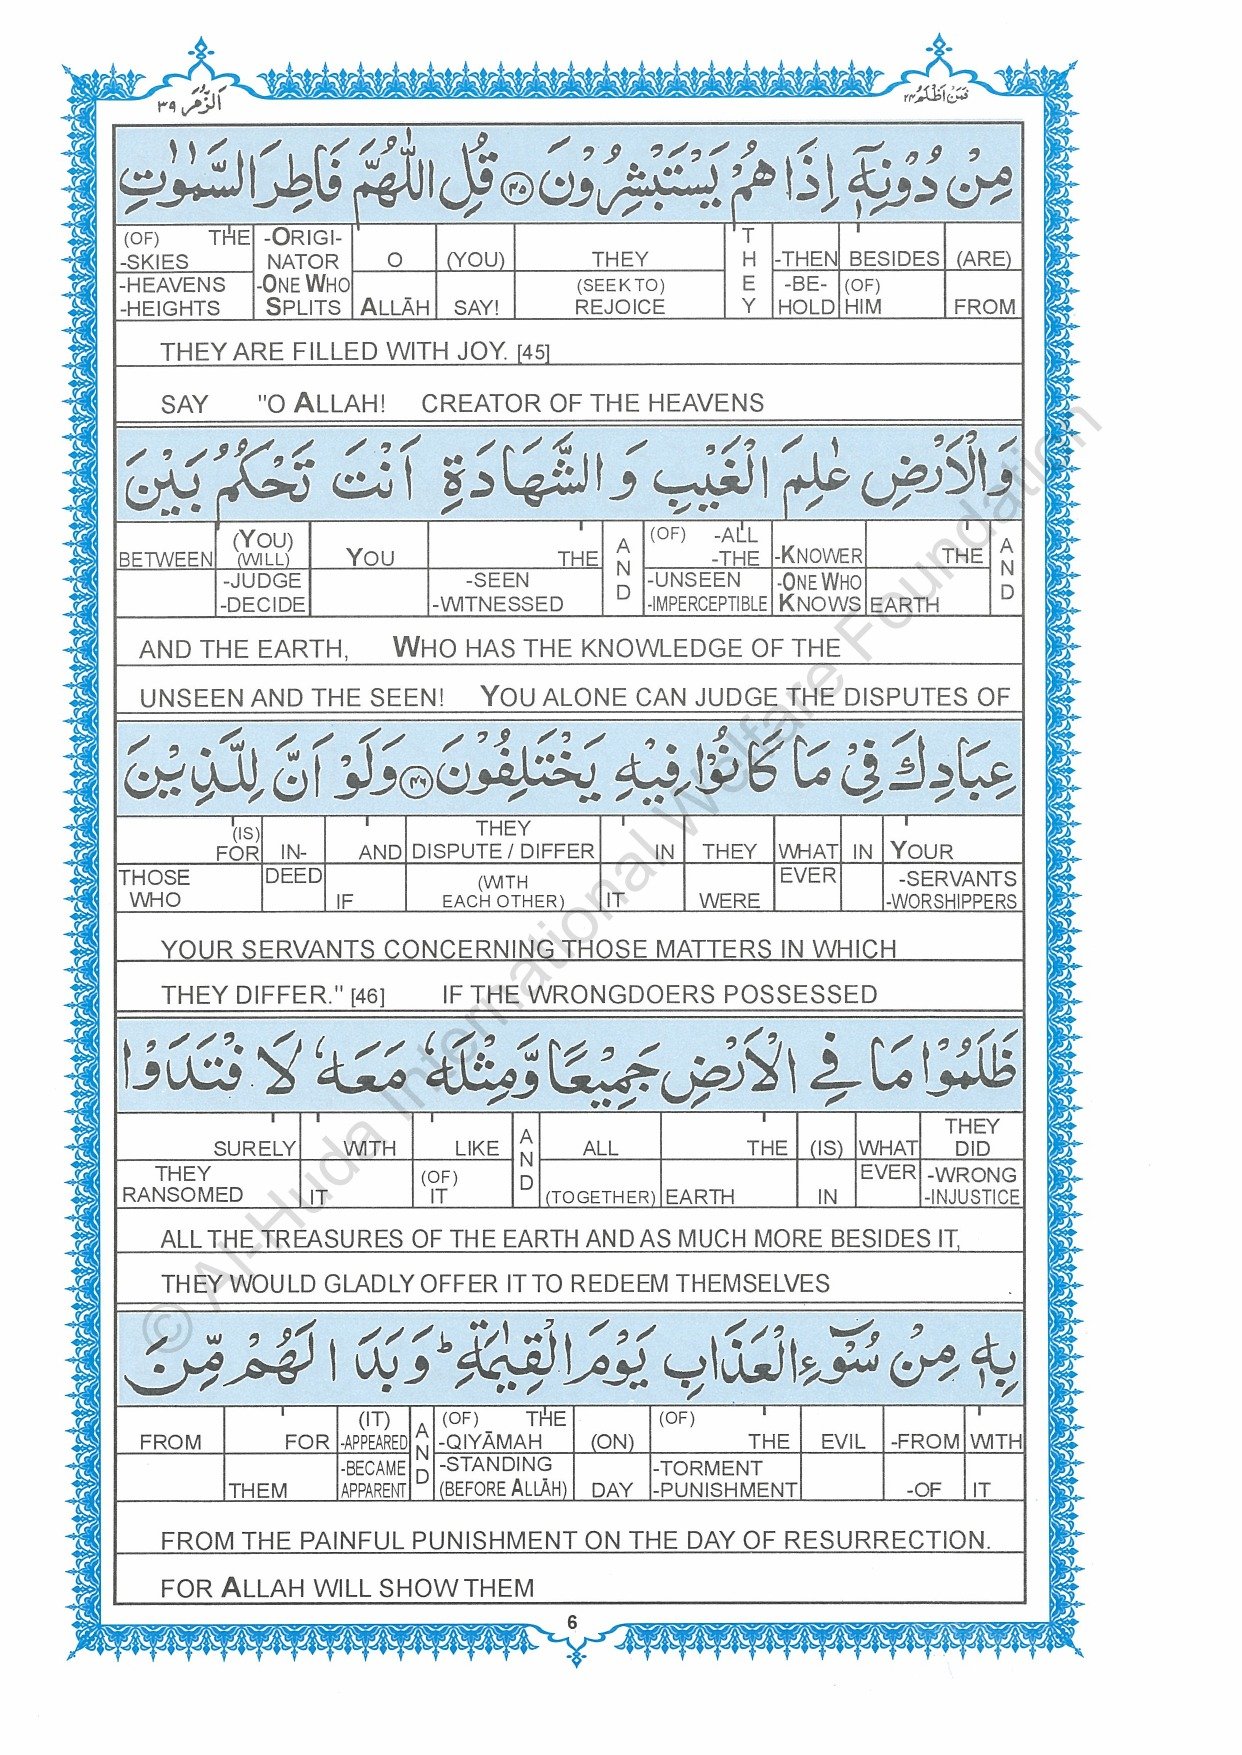 اَلزُّمَر ٣٩
فَمَنْ اَظْلَمُ ٢٤
مِنْ دُوْنِهٖۤ اِذَا هُمْ يَسْتَبْشِرُوْنَ ۝٤٥ قُلِ اللّٰهُمَّ فَاطِرَ السَّمٰوٰتِ
(OF) THE -ORIGI- O (YOU) THEY T -THEN BESIDES (ARE)
-SKIES NATOR H
-HEAVENS -ONE WHO (SEEK TO) E -BE- (OF)
-HEIGHTS SPLITS ALLĀH SAY! REJOICE Y HOLD HIM FROM
THEY ARE FILLED WITH JOY. [45]
SAY "O ALLAH! CREATOR OF THE HEAVENS
وَالْاَرْضِ عٰلِمَ الْغَيْبِ وَ الشَّهَادَةِ اَنْتَ تَحْكُمُ بَيْنَ
(YOU) (OF) -ALL
BETWEEN (WILL) YOU THE A -THE -KNOWER THE A
-JUDGE -SEEN N -UNSEEN -ONE WHO N
-DECIDE -WITNESSED D -IMPERCEPTIBLE KNOWS EARTH D
AND THE EARTH, WHO HAS THE KNOWLEDGE OF THE
UNSEEN AND THE SEEN! YOU ALONE CAN JUDGE THE DISPUTES OF
عِبَادِكَ فِيْ مَا كَانُوْا فِيْهِ يَخْتَلِفُوْنَ ۝٤٦ وَلَوْ اَنَّ لِلَّذِيْنَ
(IS) THEY
FOR IN- AND DISPUTE / DIFFER IN THEY WHAT IN YOUR
THOSE DEED (WITH EVER -SERVANTS
WHO IF EACH OTHER) IT WERE -WORSHIPPERS
YOUR SERVANTS CONCERNING THOSE MATTERS IN WHICH
THEY DIFFER." [46] IF THE WRONGDOERS POSSESSED
ظَلَمُوْا مَا فِي الْاَرْضِ جَمِيْعًا وَّمِثْلَهٗ مَعَهٗ لَا فْتَدَوْا
THEY
SURELY WITH LIKE A ALL THE (IS) WHAT DID
THEY (OF) N EVER -WRONG
RANSOMED IT IT D (TOGETHER) EARTH IN -INJUSTICE
ALL THE TREASURES OF THE EARTH AND AS MUCH MORE BESIDES IT,
THEY WOULD GLADLY OFFER IT TO REDEEM THEMSELVES
بِهٖ مِنْ سُوْٓءِ الْعَذَابِ يَوْمَ الْقِيٰمَةِ ؕ وَ بَدَا لَهُمْ مِّنَ
(IT) (OF) THE (OF)
FROM FOR -APPEARED A -QIYĀMAH (ON) THE EVIL -FROM WITH
-BECAME N -STANDING -TORMENT
THEM APPARENT D (BEFORE ALLĀH) DAY -PUNISHMENT -OF IT
FROM THE PAINFUL PUNISHMENT ON THE DAY OF RESURRECTION.
FOR ALLAH WILL SHOW THEM
6
© Al-Huda International Welfare Foundation